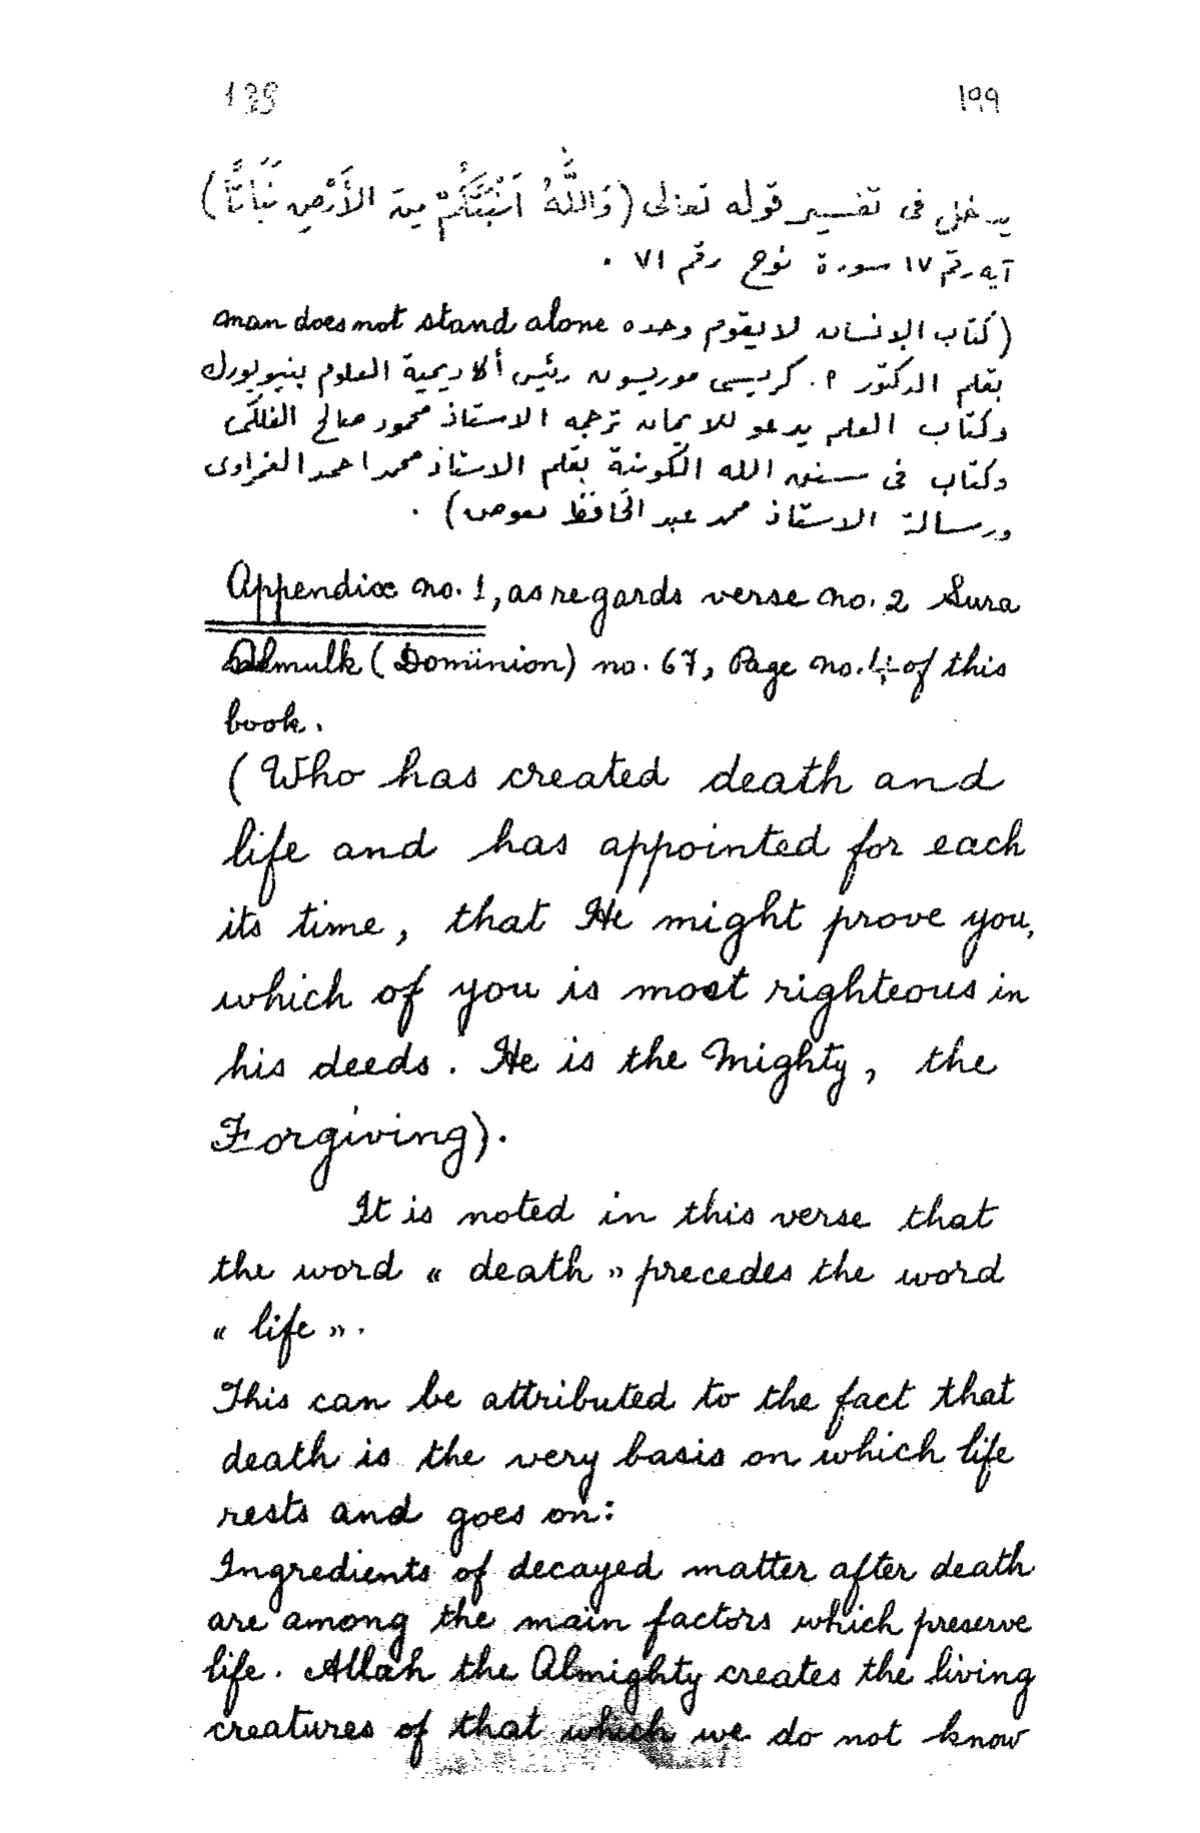 199 ١٩٩
يدخل فى تفسير قوله تعالى (وَاللَّهُ أَنْبَتَكُمْ مِنَ الأَرْضِ نَبَاتًا)
آيه رقم ١٧ سورة نوح رقم ٧١ .
(كتاب الإنسان لا يقوم وحده man does not stand alone
بقلم الدكتور أ. كريسى موريسون رئيس أكاديمية العلوم بنيويورك
وكتاب العلم يدعو للايمان ترجمه الاستاذ محمود صالح الفلكى
وكتاب فى سنن الله الكونية بقلم الاستاذ محمد احمد الغمراوى
ورسالة الاستاذ محمد عبد الحافظ معوض) .
Appendix no. 1, as regards verse no. 2 Sura
Almulk (Dominion) no. 67, Page no. 4 of this
book.
(Who has created death and
life and has appointed for each
its time, that He might prove you,
which of you is most righteous in
his deeds. He is the Mighty, the
Forgiving).
It is noted in this verse that
the word « death » precedes the word
« life ».
This can be attributed to the fact that
death is the very basis on which life
rests and goes on:
Ingredients of decayed matter after death
are among the main factors which preserve
life. Allah the Almighty creates the living
creatures of that which we do not know